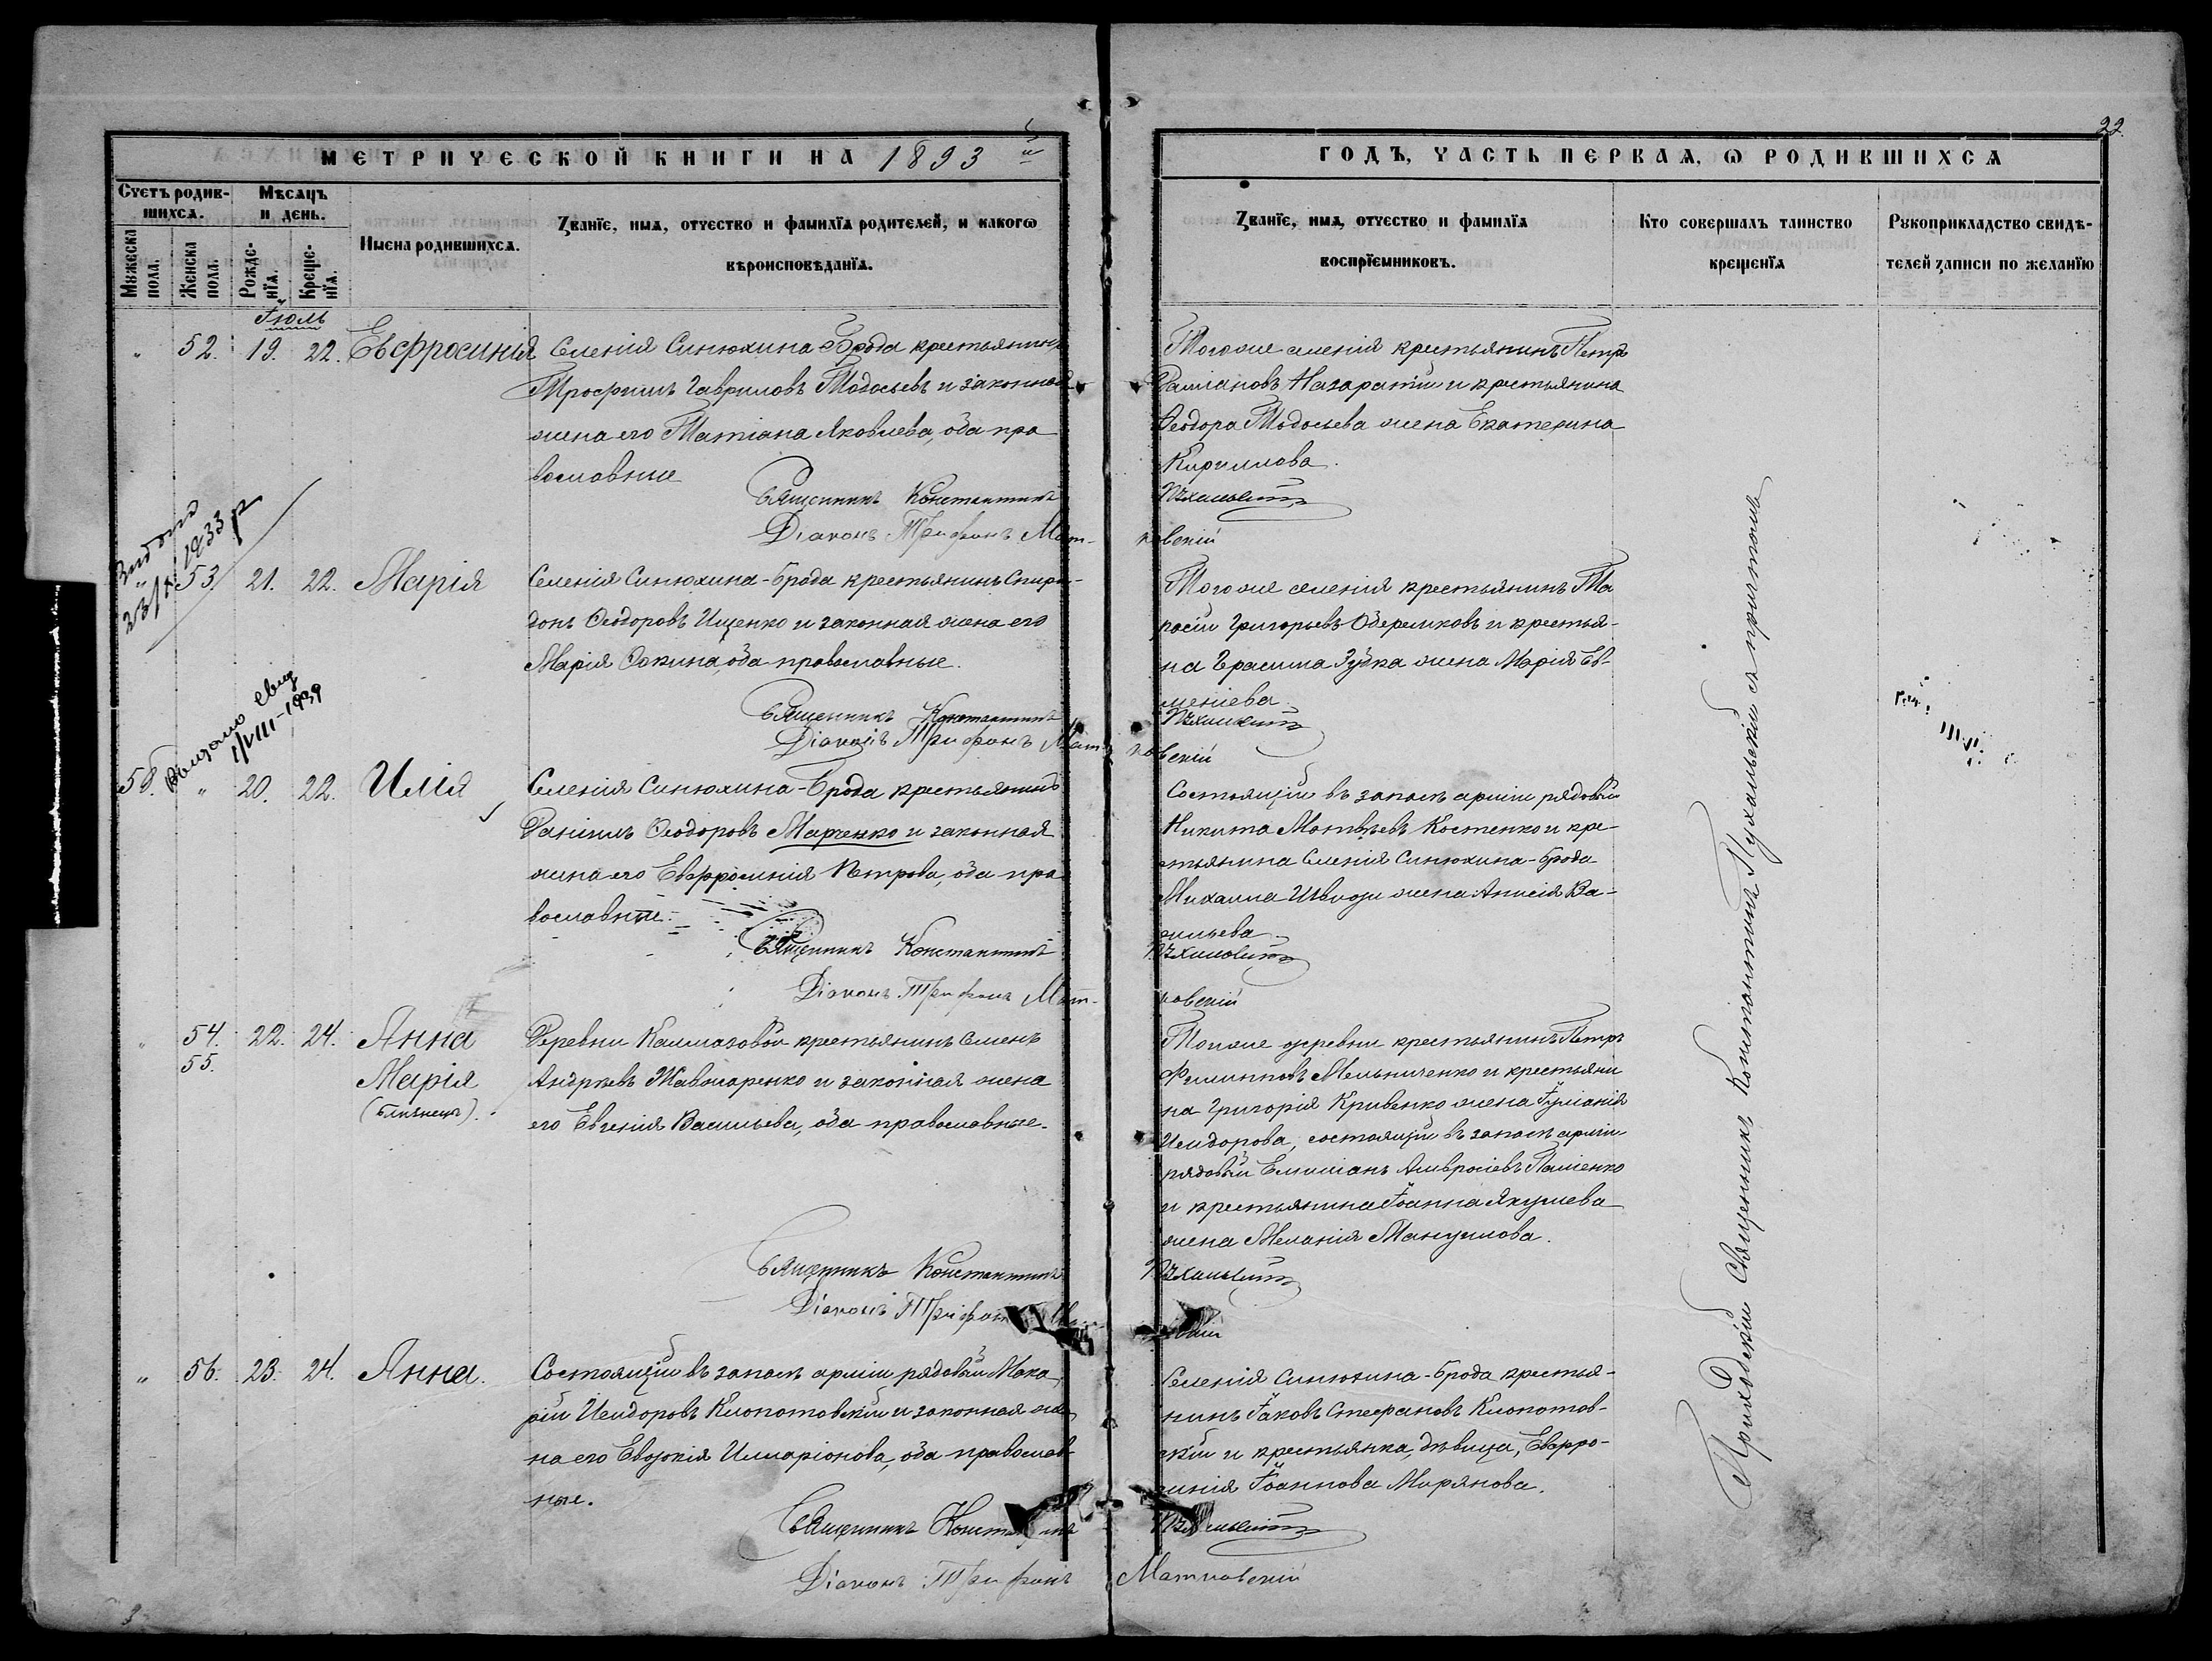 22.
МЕТРИЧЕСКОЙ КНИГИ НА 1893 й
ГОДЪ, ЧАСТЬ ПЕРВАЯ, Ѡ РОДИВШИХСЯ
Счетъ родив-
шихся.
Мѣсяцъ
и день.
Мужеска
пола.
Женска
пола.
Рожде-
нїя.
Креще-
нїя.
Имена родившихся.
Званїе, имя, отчество и фамилїя родителей, и какогѡ
вѣроисповѣданїя.
Званїе, имя, отчество и фамилїя
воспрїемниковъ.
Кто совершалъ таинство
крещенїя
Рукоприкладство свидѣ-
телей записи по желанїю
Іюль
" 52. 19. 22. Евфросинія
Селенія Синюхина Брода крестьянинъ
Трофимъ Гавриловъ Тодосьевъ и законная
жена его Татіана Яковлева, оба пра
вославные
Священникъ Константинъ
Діаконъ Трифонъ Мат-
Того же селенія крестьянинъ Петръ
Даміановъ Назаратій и крестьянина
Ѳеодора Тодосьева жена Екатерина
Кириллова.
Пухальскій
ковскій
1933 р
" 53. 21. 22. Марія
Селенія Синюхина-Брода крестьянинъ Спири-
донъ Ѳеодоровъ Ищенко и законная жена его
Марія Фокина, оба православные.
Священникъ Константинъ
Діаконъ Трифонъ Мат-
Того же селенія крестьянинъ Та
расій Григорьевъ Обережковъ и крестья-
на Герасима Зубка жена Марія Ев-
меніева.
Пухальскій
ковскій
Выдано свид
1/VIII-1939
58. " 20. 22. Илія
Селенія Синюхина-Брода крестьянинъ
Даніилъ Ѳеодоровъ Марченко и законная
жена его Евфросинія Петрова, оба пра
вославные.
Священникъ Константинъ
Діаконъ Трифонъ Мат-
Состоящій въ запасѣ арміи рядовый
Никита Матвѣевъ Костенко и кре-
стьянина Селенія Синюхина-Брода
Михаила жена Анисія Ва-
сильева.
Пухальскій
ковскій
" 54. 22. 24. Анна
55. Марія
(близнецы).
Деревни Калмазовой крестьянинъ Семенъ
Андреевъ Жаволаренко и законная жена
его Евгенія Васильева, оба православные.
Священникъ Константинъ
Діаконъ Трифонъ
Той же деревни крестьянинъ Петръ
Филипповъ Мельниченко и крестьяни
на Григорія Кривенко жена Іуліанія
Исидорова, состоящій въ запасѣ арміи
рядовый Емиліанъ Амвросіевъ Паліенко
и крестьянина Іоанна Якушева
жена Меланія Мануилова.
Пухальскій
" 56. 23. 24. Анна.
Состоящій въ запасѣ арміи рядовый Мака-
рій Исидоровъ Клопотовскій и законная же
на его Евдокія Иларіонова, оба православ-
ные.
Священникъ Константинъ
Діаконъ Трифонъ Матковскій
Селенія Синюхина-Брода крестья-
нинъ Іаковъ Стефановъ Клопотов-
скій и крестьянка, дѣвица, Евфро-
синія Іоаннова Мирянова.
Пухальскій
Приходскій Священникъ Константинъ Пухальскій съ причтомъ